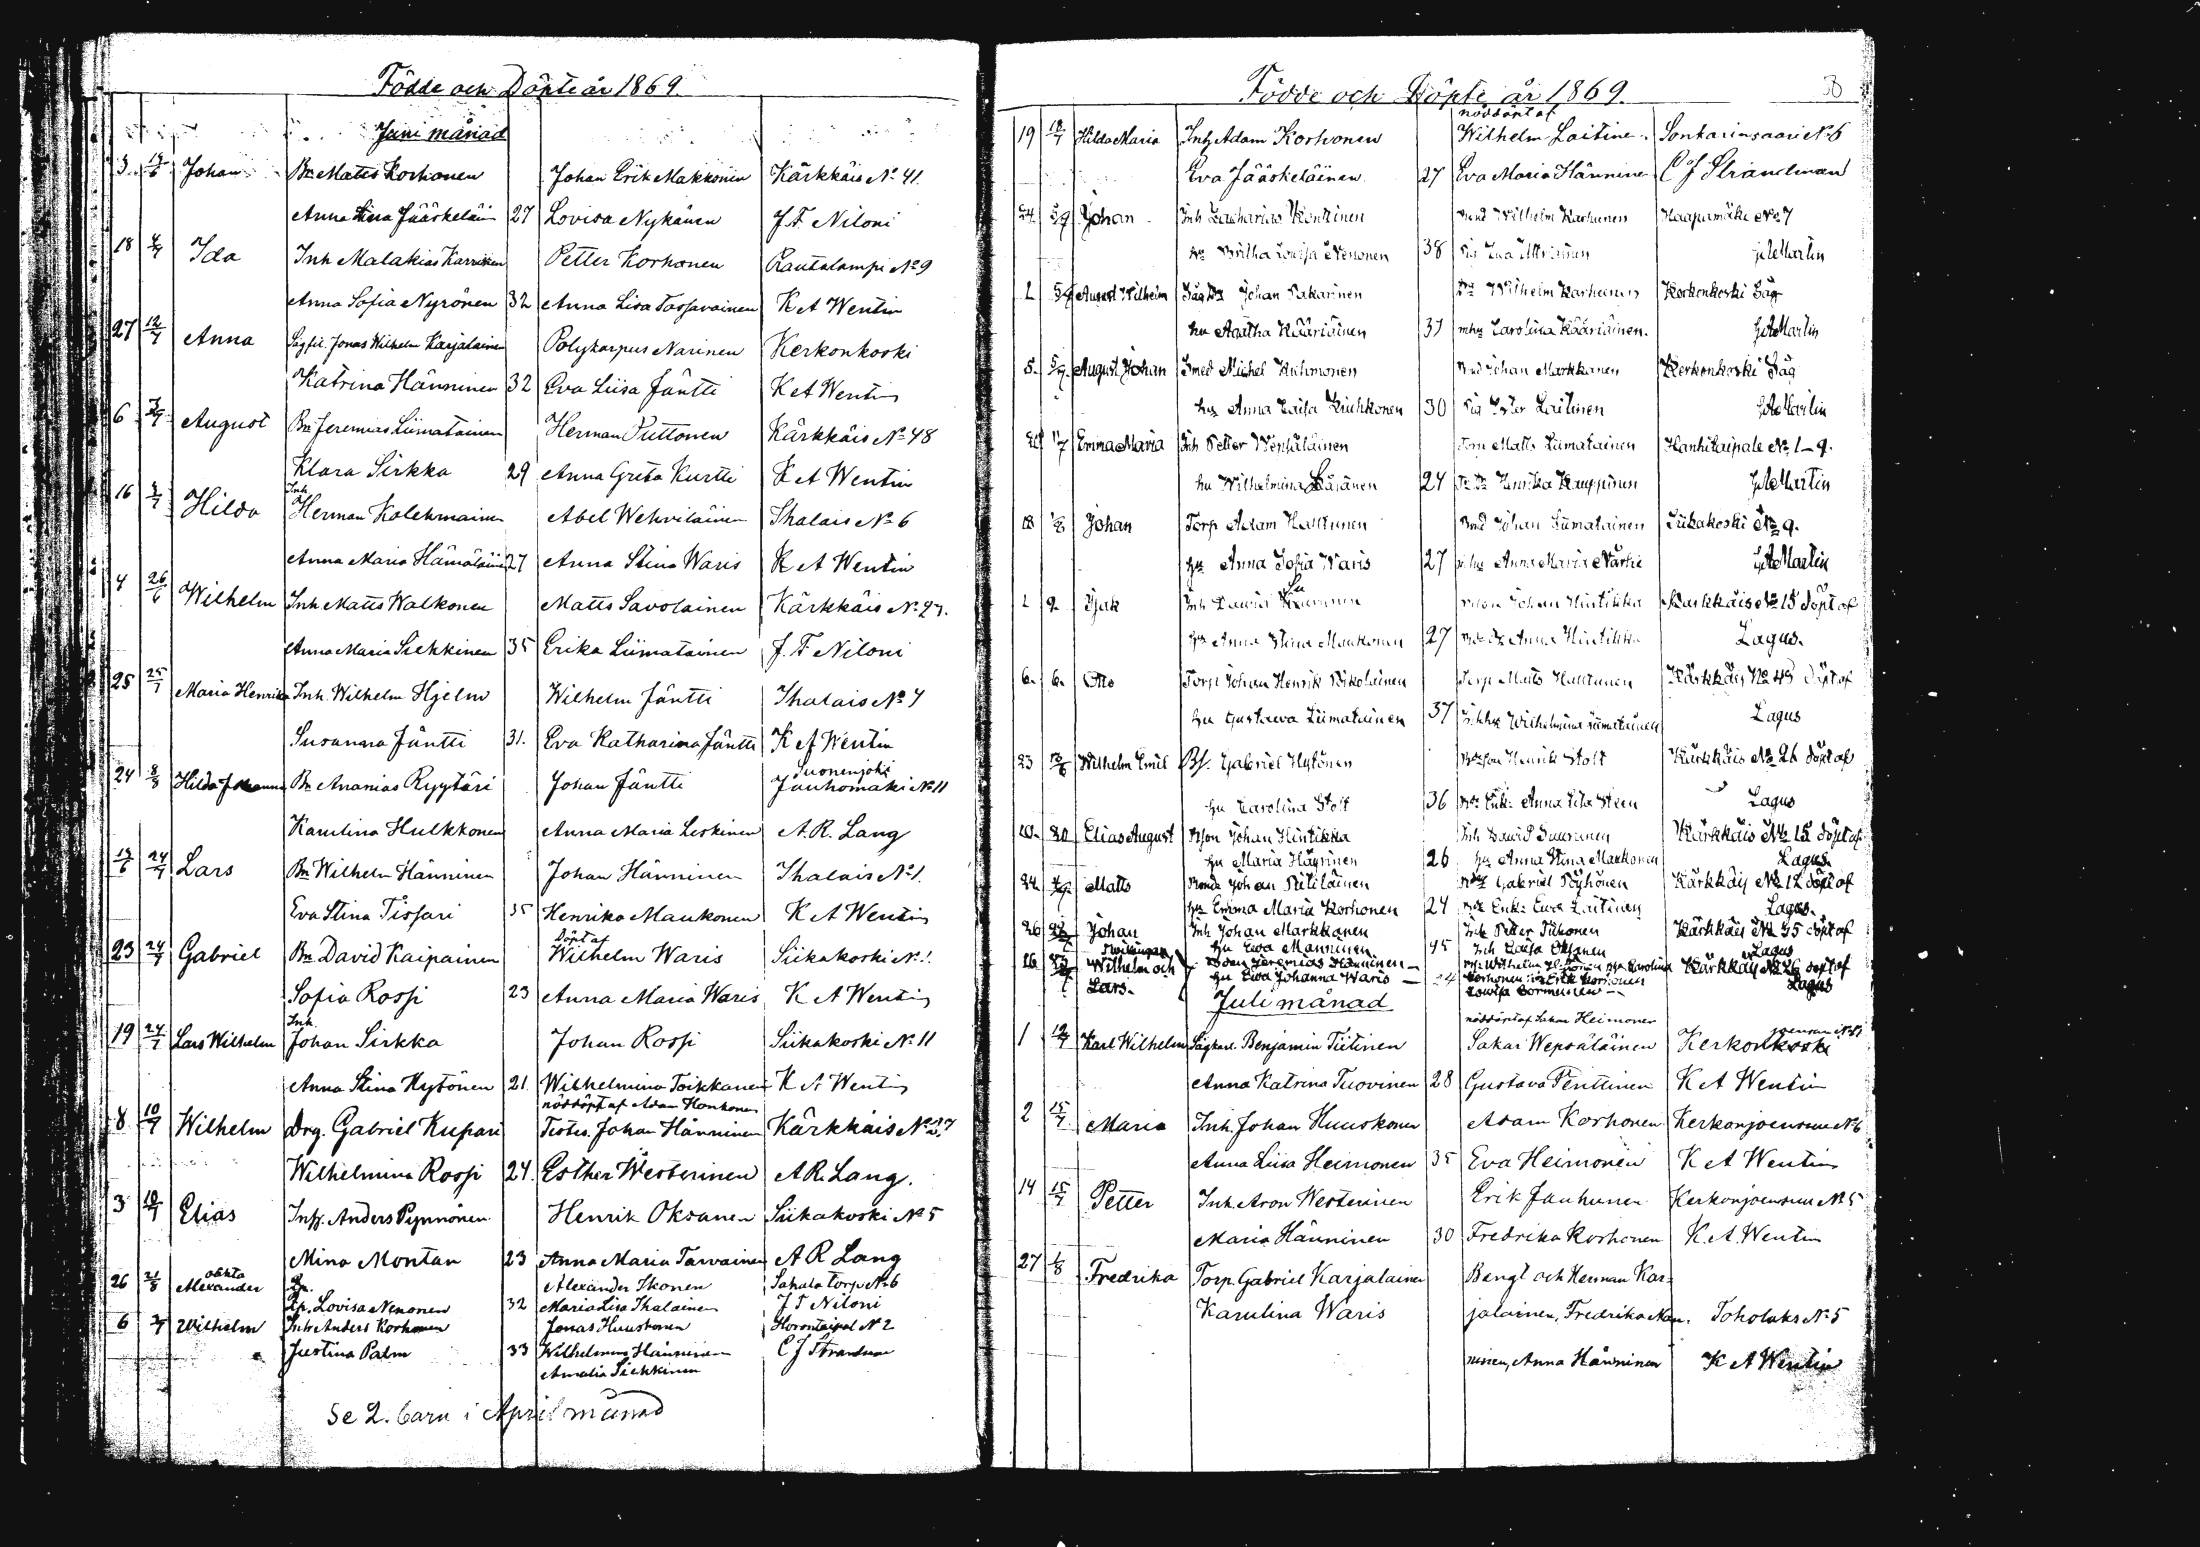 Födde och Döpte år 1869.
Juni månad
3 13/6 Johan Bn Matts Korhonen Johan Erik Makkonen Kärkkäis No 41.
Anna Stina Jääskeläin 27 Lovisa Nykänen J. F. Niloni
18 4/7 Ida Inh Malakias Karvinen Petter Korhonen Rautalampi No 9
Anna Sofia Nyrönen 32 Anna Lisa Tossavainen K A Wentin
27 12/7 Anna Jonas Wilhelm Karjalainen Polykarpus Narinen Kerkonkoski
Katrina Hänninen 32 Eva Liisa Jäntti K A Wentin
6 August Bn Jeremias Liimatainen Herman Puttonen Kärkkäis No 48
Klara Sirkka 29 Anna Greta Kurtti K A Wentin
16 Hilda Inh Herman Kolehmainen Abel Wehviläinen Ihalais No 6
Anna Maria Hämäläinen 27 Anna Stina Waris K A Wentin
4 26/6 Wilhelm Inh Matts Walkonen Matts Savolainen Kärkkäis No 27.
Anna Maria Siekkinen 35 Erika Liimatainen J. F. Niloni
25 25/7 Maria Henrika Inh. Wilhelm Hjelm Wilhelm Jäntti Ihalais No 4
Susanna Jäntti 31. Eva Katharina Jäntti K A Wentin
24 8/8 Hilda Johanna Bn Ananias Ryytäri Johan Jäntti Suonenjoki Jauhomäki No 11
Karulina Hulkkonen Anna Maria Leskinen A. R. Lang
13/6 24/7 Lars Bn Wilhelm Hänninen Johan Hänninen Ihalais No 1.
Eva Stina Tissari 35 Henrika Maukonen K A Wentin
23 24/7 Gabriel Bn David Kaipainen Döpt af Wilhelm Waris Siikakoski No 1.
Sofia Rossi 23 Anna Maria Waris K A Wentin
19 24/7 Lars Wilhelm Inh. Johan Sirkka Johan Rossi Siikakoski No 11
Anna Stina Hytönen 21. Wilhelmina Toikkanen K A Wentin
8 10/7 Wilhelm Drg. Gabriel Kupari nöddöpt af Adam Honkonen Testes. Johan Hänninen Kärkkäis No 27
Wilhelmina Rossi 24. Esther Westerinen A R. Lang.
3 10/7 Elias Anders Pynnönen Henrik Oksanen Siikakoski No 5
Mina Montan 23 Anna Maria Tarvainen A R Lang
26 21/8 oäkta Alexander Alexander Ikonen Sahala torp No 6
Lovisa Nenonen 32 Maria Lisa Ihalainen J F Niloni
6 Wilhelm Inh Anders Korhonen Jonas Huuskonen No 2
Justina Palm 33 Wilhelmina Hänninen C J Strandman
Amalia Siekkinen
Se 2. barn i April månad
Födde och Döpte år 1869.
19 18/7 Hilda Maria Inh Adam Korhonen nöddöpt af Wilhelm Laitine Sonkarinsaari No 6
Eva Jääskeläinen 27 Eva Maria Hännine C J Strandman
24 Johan Inh Zacharias Konttinen Wilhelm Karhunen Haapamäki No 7
Britha Lovisa Nenonen 38 G A Martin
2 August Wilhelm Johan Pakarinen Wilhelm Karhunen Kerkonkoski Såg
hu Agatha Kääriäinen 37 Carolina Kääriäinen. G A Martin
5. August Johan Smed Michel Kuhmonen Johan Markkanen Kerkonkoski Såg
Anna Caisa Kiukkonen 30 Ester Laitinen G A Martin
Emma Maria Inh Petter Wepsäläinen Matts Liimatainen Hanhitaipale No 1-9.
hu Wilhelmina Räsänen 24 Henrika Kauppinen G A Martin
18 1/8 Johan Torp Adam Halttunen Johan Liimatainen Siikakoski No 9.
Anna Sofia Waris 27 Anna Maria Närhi G A Martin
Isak Inh David Johan Hintikka Kärkkäis No 15 döpt af
Anna Stina Maukonen 27 Anna Hintikka Lagus.
6. 6. Otto Torp Johan Henrik Nikolainen Torp Matts Halttunen Kärkkäis No 48 döpt af
hu Gustawa Liimatainen 37 Wilhelmina Liimatainen Lagus
23 Wilhelm Emil Gabriel Hytönen Henrik Stolt Kärkkäis No 26 döpt af
hu Carolina Stolt 36 Enk. Anna Lisa Steen Lagus
20. Elias August Johan Hintikka Inh David Suuronen Kärkkäis No 15 döpt af
hu Maria Häyrinen 26 hu Anna Stina Maukonen Lagus.
24 Matts Bonde Johan Pitiläinen Gabriel Pöyhönen Kärkkäis No 12 döpt af
Emma Maria Korhonen 24 Enk: Ewa Laitinen Lagus.
26 Johan Inh Johan Markkanen Inh Petter Tuhonen Kärkkäis No 45 döpt af
hu Ewa Manninen 45 Inh Caisa Oksanen Lagus
16 Tvillingar Wilhelm och Jeremias Hänninen Wilhelm Carolina Kärkkäis No 26 döpt af
Lars. hu Ewa Johanna Waris 24 Korhonen Erik Korhonen Lagus
Lowisa
Juli månad
nöddöpt af Sakar Heimonen
1 12/7 Karl Wilhelm Sågkarl. Benjamin Tiitinen Sakari Wepsäläinen Kerkonkoski
Anna Katrina Tuovinen 28 Gustava Penttinen K A Wentin
2 15/7. Maria Inh Johan Huuskonen Adam Korhonen Kerkonjoensuu No 6
Anna Liisa Heimonen 35 Eva Heimonen K A Wentin
14 15/7 Petter Inh Aron Westerinen Erik Jauhunen Kerkonjoensuu No 5
Maria Hänninen 30 Fredrika Korhonen K. A. Wentin
27 1/8 Fredrika Torp. Gabriel Karjalainen Bengt och Herman Kar-
Karulina Waris jalainen, Fredrika Man- Toholaks No 5
ninen, Anna Hänninen K A Wentin